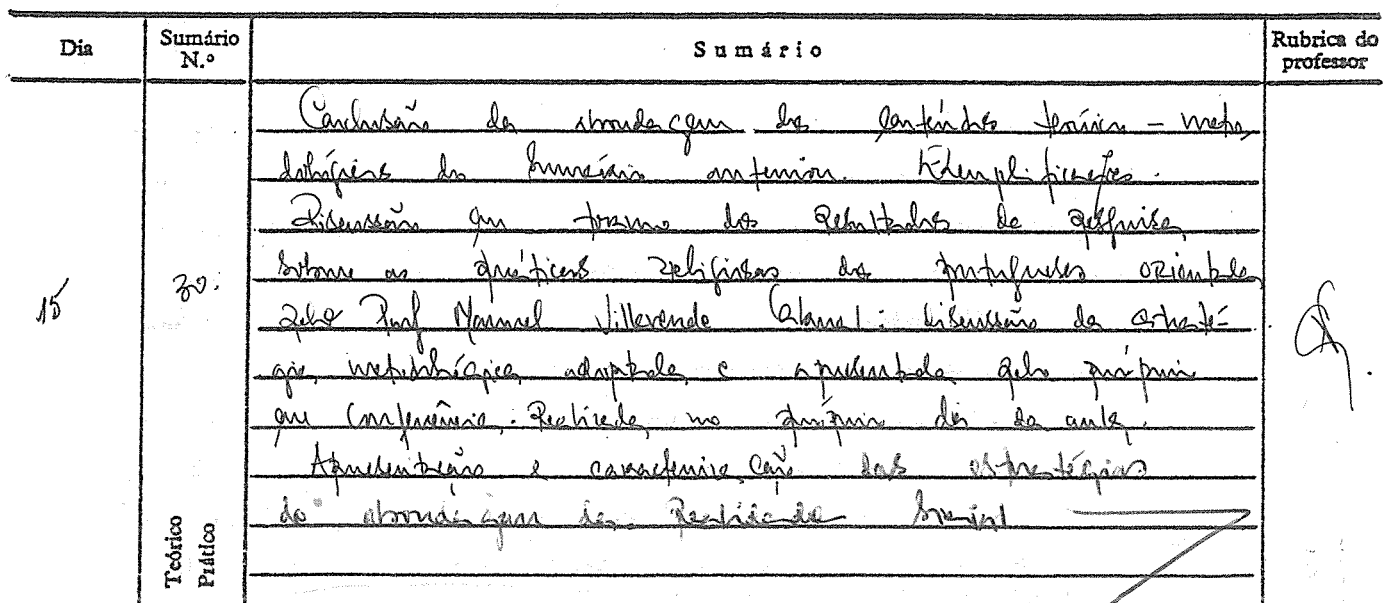 Dia
Sumário N.º
Sumário
Rubrica do professor
15
30.
Conclusão da abordagem dos conteúdos teórico - meto-
dológicos do sumário anterior. Exemplificações.
Discussão em torno dos resultados da pesquisa
sobre as práticas religiosas dos portugueses orientada
pelo Prof Manuel Villaverde Cabral: discussão da estraté-
gia metodológica adoptada e apresentada pelo próprio
em conferência. Realizada no próprio dia da aula.
Apresentação e caracterização das estratégias
de abordagem da Realidade Social
Teórico
Prático